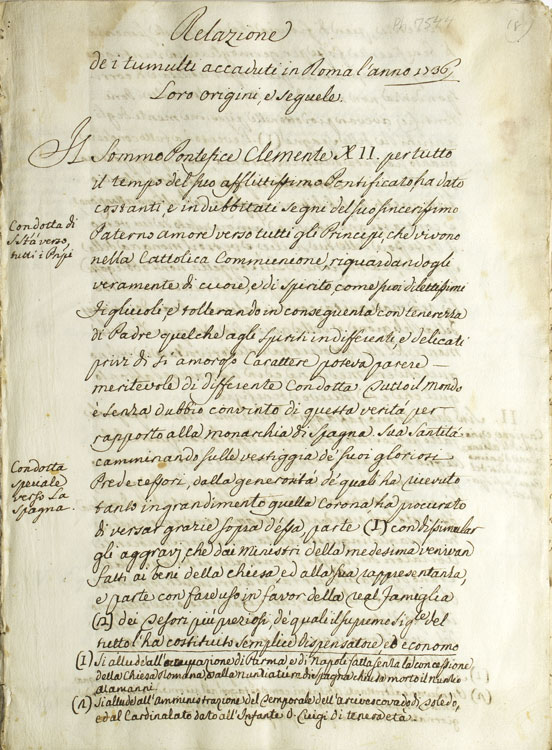 Relazione
de i tumulti accaduti in Roma l'anno 1736,
Loro origini, e seguele.
Il Sommo Pontefice Clemente XII. per tutto
il tempo del suo afflittissimo Pontificato ha dato
costanti, e indubbitati segni del suo sincerissimo
Paterno amore verso tutti gli Principi, che vivono
nella Cattolica Communione, riguardandogli
veramente di cuore, e di spirito, come suoi dilettissimi
figliuoli, e tollerando in conseguenza con tenerezza
di Padre quelche agli spiriti indifferenti e delicati
privi di sì amoroso Carattere poteva parere
meritevole di differente Condotta. Tutto il mondo
è senza dubbio convinto di questa verità per
rapporto alla monarchia di Spagna. Sua Santità
camminando sulle vestiggia de' suoi gloriosi
Predecessori, dalla generosità de' quali ha ricevuto
tanto ingrandimento quella Corona ha procurato
di versar grazie sopra d'essa, parte (1) con dissimular
gli aggravj che dai Ministri della medesima venivan
fatti ai beni della chiesa, ed alla sua rappresentanza,
e parte con far uso in favor della real famiglia
(2) dei Tesori più preziosi, de' quali il supremo Sig.re del
tutto l'ha costituto semplice dispensatore ed economo
Condotta di
S. Stà verso
tutti i Prpi
Condotta
speciale
verso La
Spagna.
(1) Si allude all'occupazione di Parma e di Napoli fatta senza la concessione
della Chiesa Romana, e alla nunziatura di Spagna chiusa morto il nunzio
Alamanni
(2) Si allude all'amministrazione del temporale dell'arcivescovado di Toledo,
e dal Cardinalato dato all'Infante D. Luigi di tenera età.